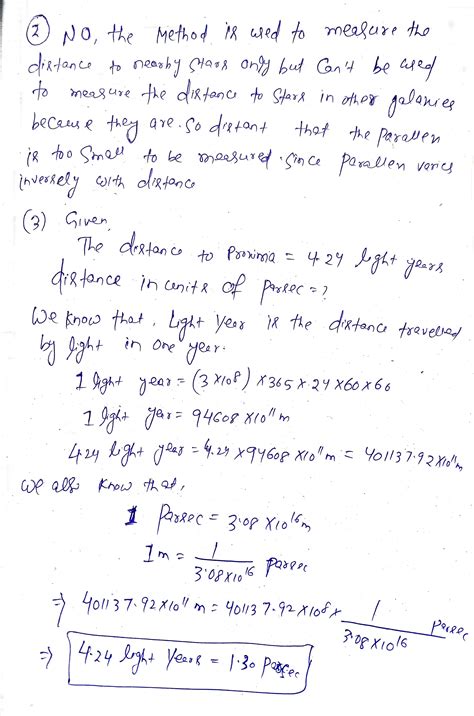 (2) NO, the Method is used to measure the
distance to nearby stars only but can't be used
to measure the distance to stars in other galaxies
because they are so distant that the parallex
is too small to be measured. Since parallex varies
inversely with distance
(3) Given,
The distance to Proxima = 4.24 light years
distance in units of Parsec = ?
We know that, Light Year is the distance travelled
by light in one year.
1 light year = (3 × 10⁸) × 365 × 24 × 60 × 60
1 light year = 94608 × 10¹¹ m
4.24 light year = 4.24 × 94608 × 10¹¹ m = 401137.92 × 10¹¹ m
We also know that,
1 Parsec = 3.08 × 10¹⁶ m
1 m = 1 / 3.08 × 10¹⁶ Parsec
⇒ 401137.92 × 10¹¹ m = 401137.92 × 10⁸ × 1 / 3.08 × 10¹⁶ Parsec
⇒ 4.24 light Years = 1.30 Parsec